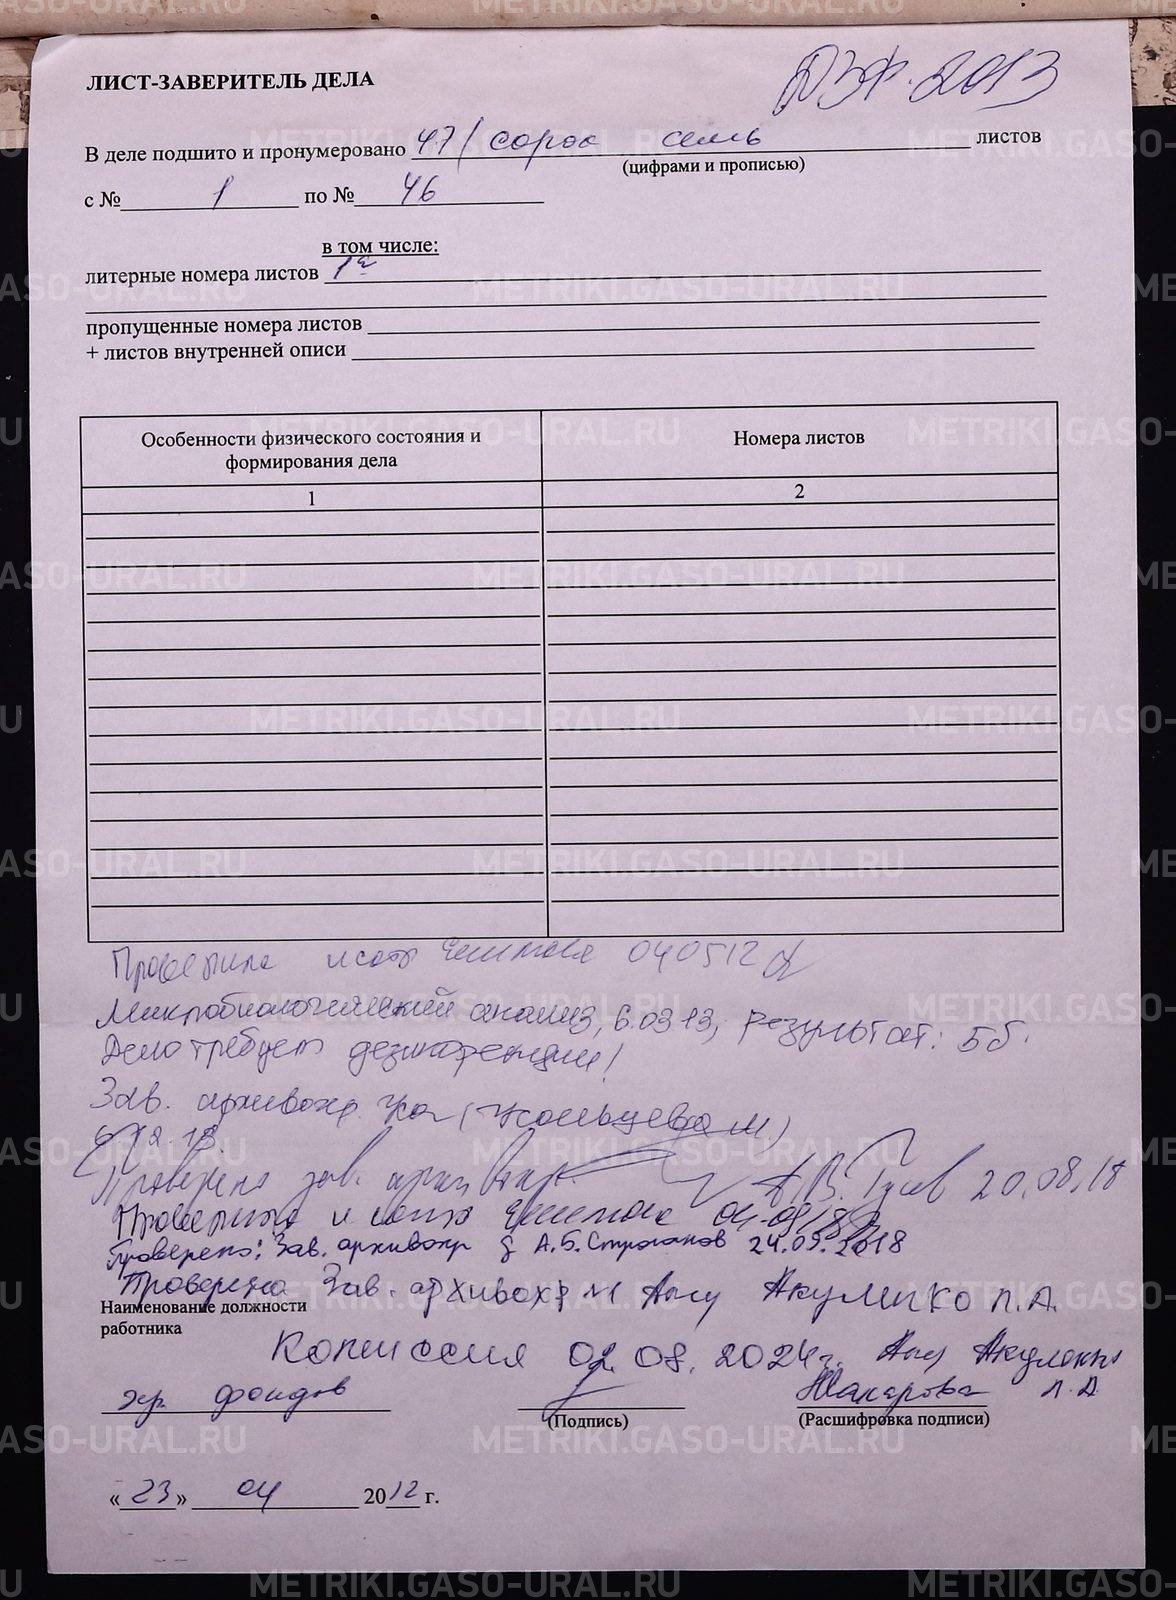 ДЗФ. 2013
ЛИСТ-ЗАВЕРИТЕЛЬ ДЕЛА
В деле подшито и пронумеровано 47/ сорок семь листов
(цифрами и прописью)
с № 1 по № 46
в том числе:
литерные номера листов 1а
пропущенные номера листов
+ листов внутренней описи
Особенности физического состояния и формирования дела
Номера листов
1
2
Проверила 040512
Микробиологический анализ, 6.03 13, результат: 5б.
Дело требует дезинфекции!
Зав. архивохр. (Кольцева М)
Проверено зав. архивохр. А.В. Гусев 20.08.18
Проверила
Проверено: Зав. архивохр А.Б. Строганов 24.09.2018
Проверено Зав. архивохр №1 Акуленко Л.А.
Наименование должности
работника
Комиссия 02.08.2024г. Акуленко
Л.А
хр. фондов Макарова
(Подпись) (Расшифровка подписи)
«23» 04 2012 г.
METRIKI.GASO-URAL.RU